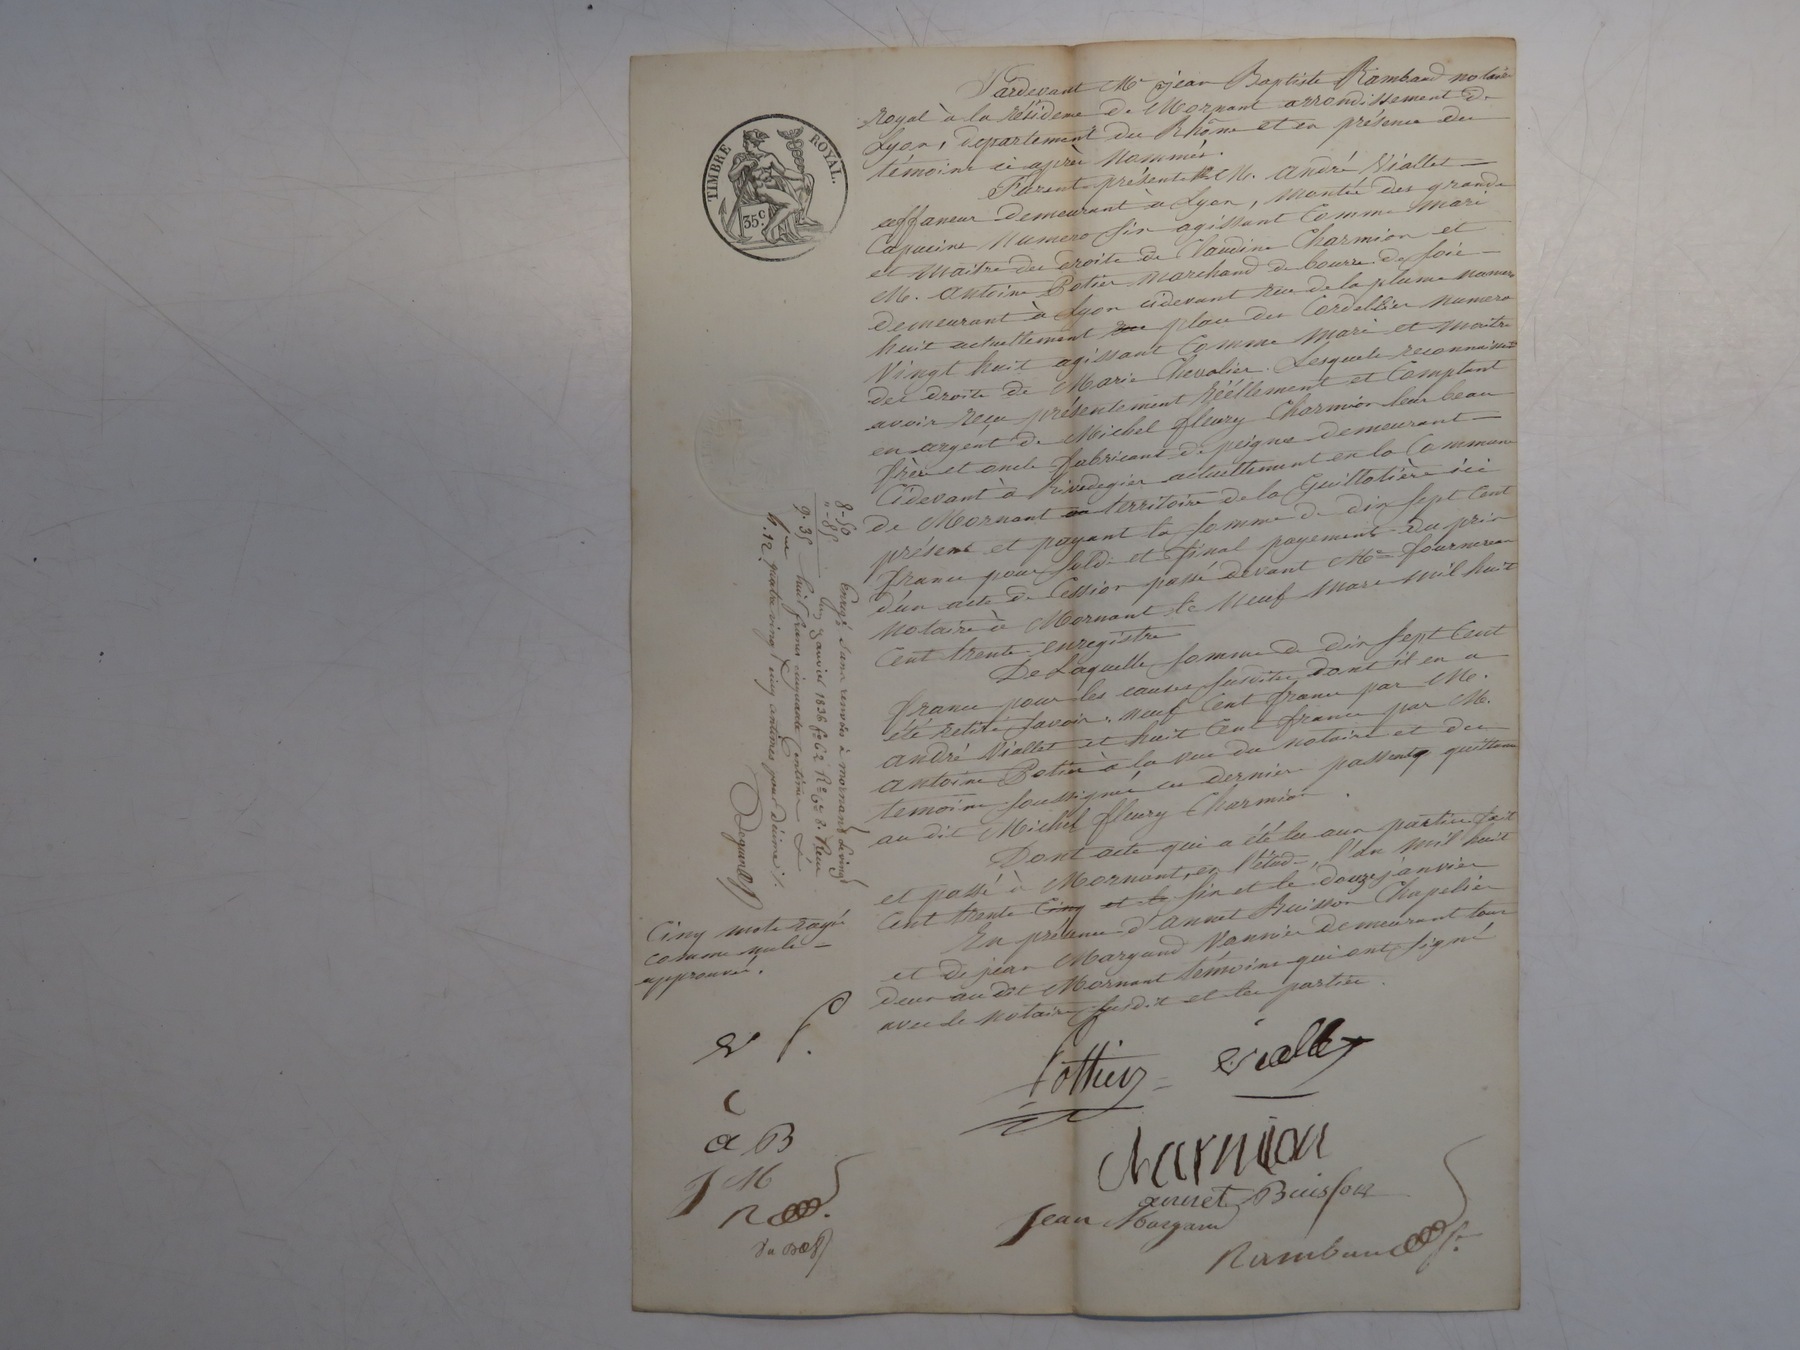 TIMBRE ROYAL.
35 c.
Pardevant Me jean Baptiste Rambaud notaire
royal à la résidence de Mornant arrondissement de
Lyon, departement du Rhône et en présence des
témoins ci après nommés.
Furent présents M. andré Viallet
affaneur demeurant à Lyon, montée des grands
Capucins numero six agissant comme mari
et maitre des droits de Claudine Charmion et
M. antoine Potier marchand de bourre de soie
demeurant à Lyon cidevant rue de la plume numero
huit actuellement rue place des Cordellier numero
vingt huit agissant comme mari et maitre
des droits de Marie Chevalier. Lesquels reconnaissent
avoir reçu présentement réellement et comptant
en argent de Michel fleury Charmion leur beau
frère et oncle fabricant de peignes demeurant
Cidevant à Rivedegier actuellement en la Commune
de Mornant au territoire de la Guillotière ici
présent et payant la somme de dix sept cent
francs pour solde et final payement du prix
d'un acte de Cession passé devant Me fournereau
notaire à Mornant le neuf mars mil huit
cent trente enregistré
De Laquelle somme de dix sept cent
francs pour les causes susdites dont il en a
été retiré savoir: neuf cent francs par M.
andré Viallet et huit cent francs par M.
antoine Potier à la vue du notaire et des
temoins soussignés ces dernier passent quittance
au dit Michel fleury Charmion.
Dont acte qui a été lu aux parties fait
et passé à Mornant, en l'étude, l'an mil huit
cent trente cinq et le six et le douze janvier
En présence d'annet Buisson Chapelier
et de jean Margand Vannier demeurant tous
deux au dit Mornant témoins qui ont signé
avec le notaire susdit et les parties.
8-50
"-85
9.35
Enregé sans renvois à mornant le vingt
cinq janvier 1836 fo 62 Ro Co 8. Reçu
huit francs cinquante centimes &
pr 12. quatre vingt cinq centimes pour décime ./.
Cinq mots rayés
comme nuls
approuvés.
V P.
C
a B
J M
R
Pottier
Viallet
charmion
annet Buisson
Jean Margand
Rambaud